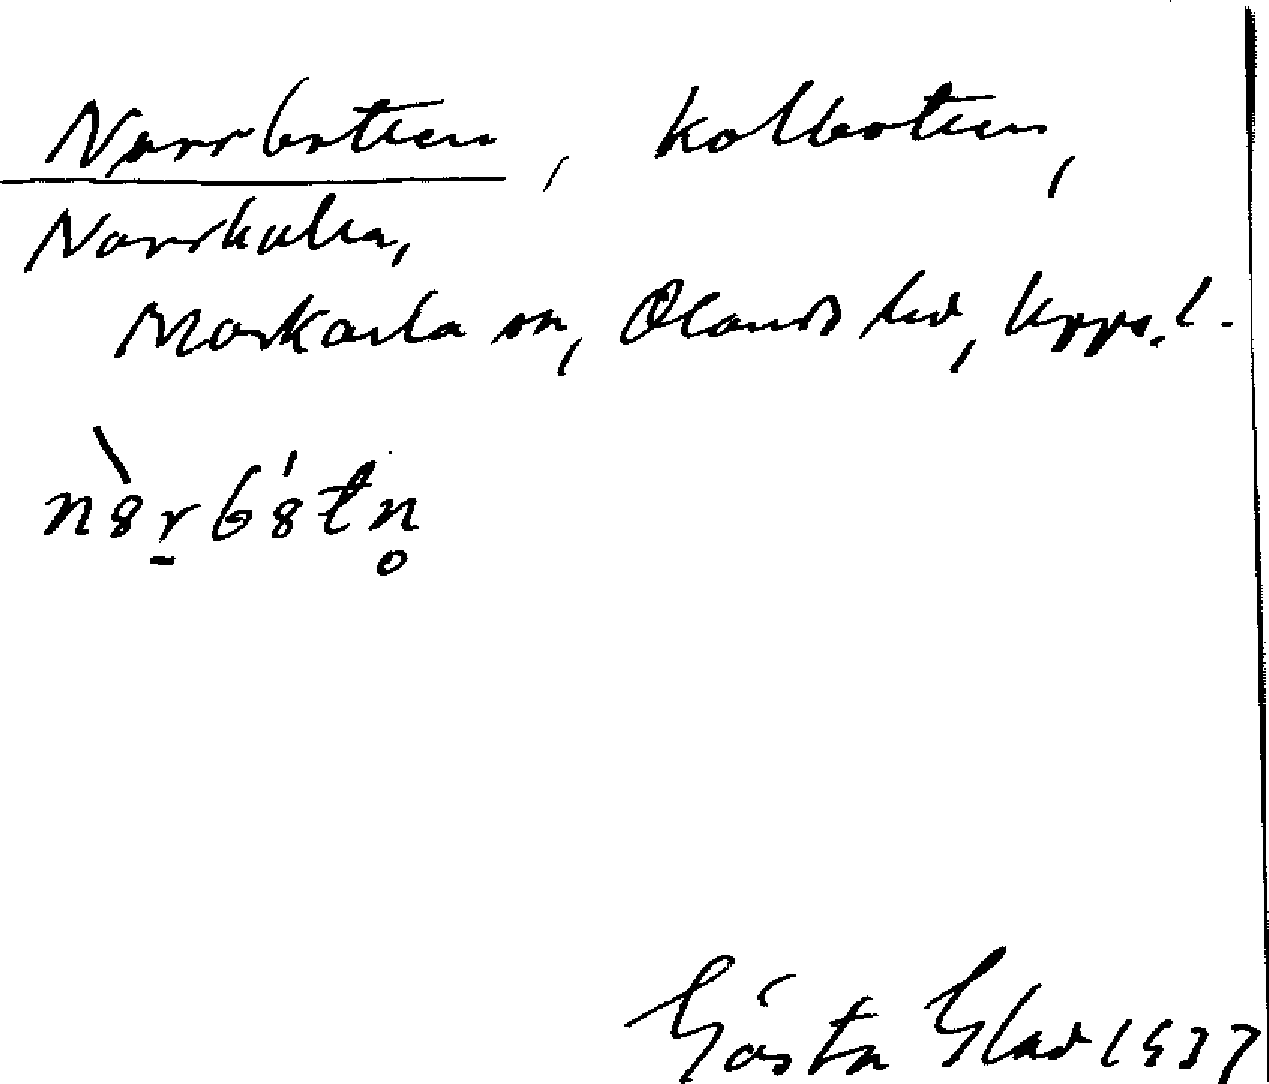 Norrbotten, kolbotten,
Norrhållen,
Morkarla sn, Olands hd, Upps.l.
n8̀r̲b8́tn̥
Gösta Glad 1937